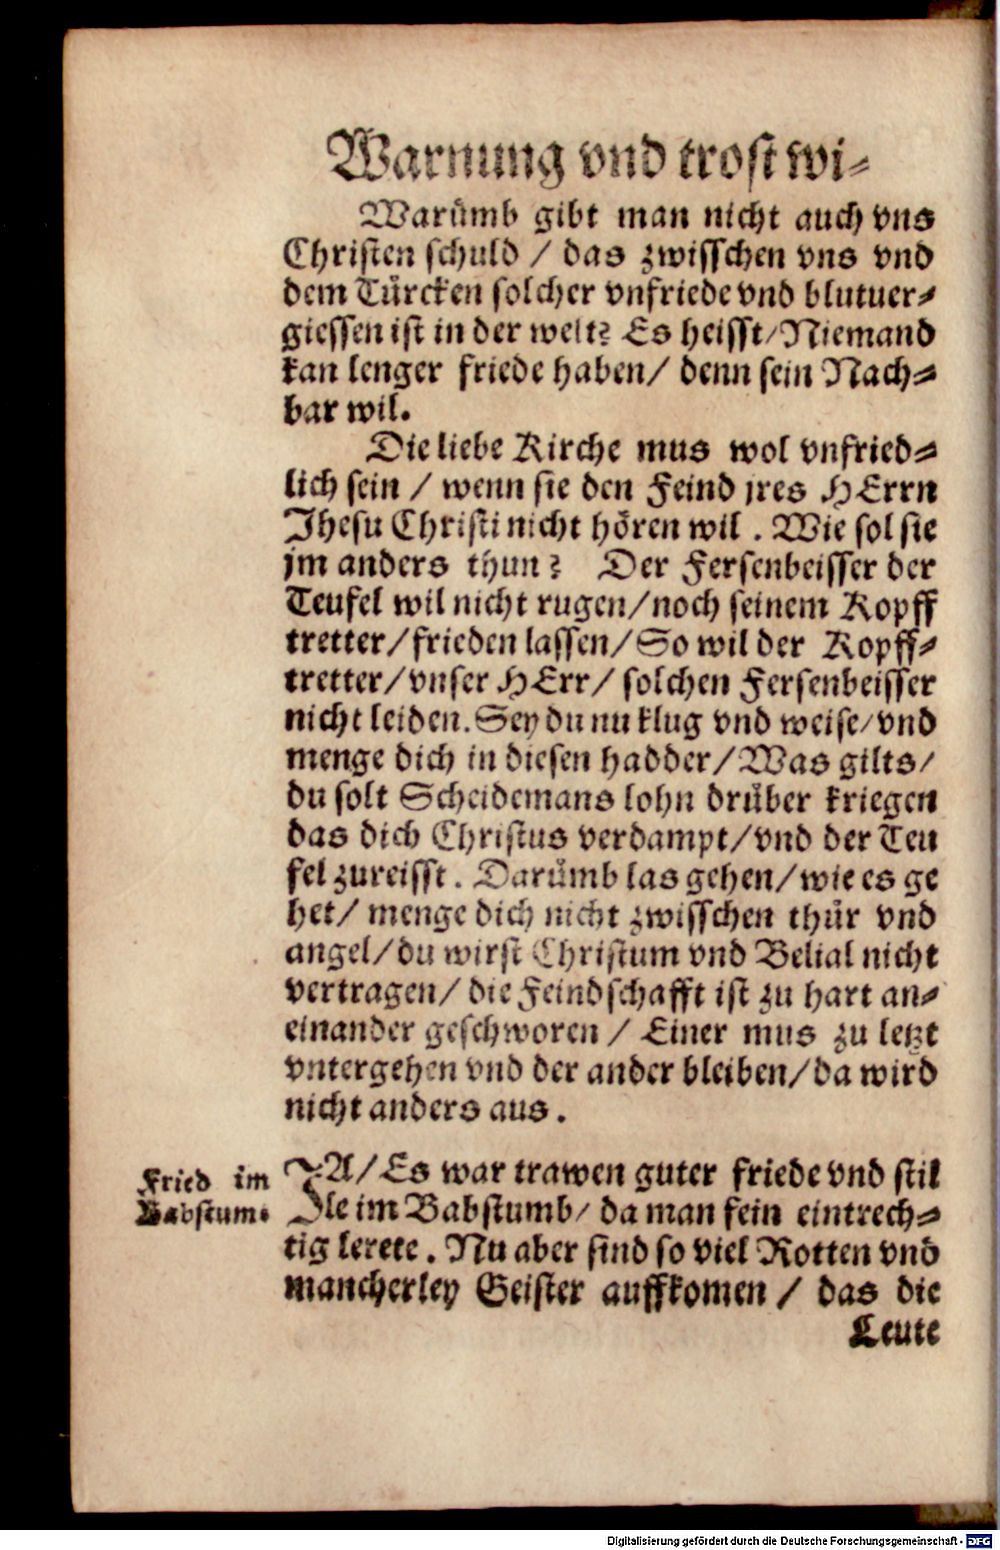 Warnung vnd trost wi-
Warümb gibt man nicht auch vns
Christen schuld / das zwisschen vns vnd
dem Türcken solcher vnfriede vnd blutuer-
giessen ist in der welt? Es heisst/Niemand
kan lenger friede haben/ denn sein Nach-
bar wil.
Die liebe Kirche mus wol vnfried-
lich sein / wenn sie den Feind jres HErrn
Jhesu Christi nicht hören wil . Wie sol sie
jm anders thun? Der Fersenbeisser der
Teufel wil nicht rugen/noch seinem Kopff
tretter/frieden lassen/So wil der Kopff-
tretter/vnser HErr/ solchen Fersenbeisser
nicht leiden.Sey du nu klug vnd weise/vnd
menge dich in diesen hadder/Was gilts/
du solt Scheidemans lohn drüber kriegen
das dich Christus verdampt/vnd der Teu
fel zureisst . Darümb las gehen/wie es ge
het/ menge dich nicht zwisschen thür vnd
angel/du wirst Christum vnd Belial nicht
vertragen/ die Feindschafft ist zu hart an-
einander geschworen / Einer mus zu letzt
vntergehen vnd der ander bleiben/da wird
nicht anders aus .
Fried im
Babstum.
JA/Es war trawen guter friede vnd stil
le im Babstumb/ da man fein eintrech-
tig lerete . Nu aber sind so viel Rotten vnd
mancherley Geister auffkomen / das die
Leute
Digitalisierung gefördert durch die Deutsche Forschungsgemeinschaft - DFG